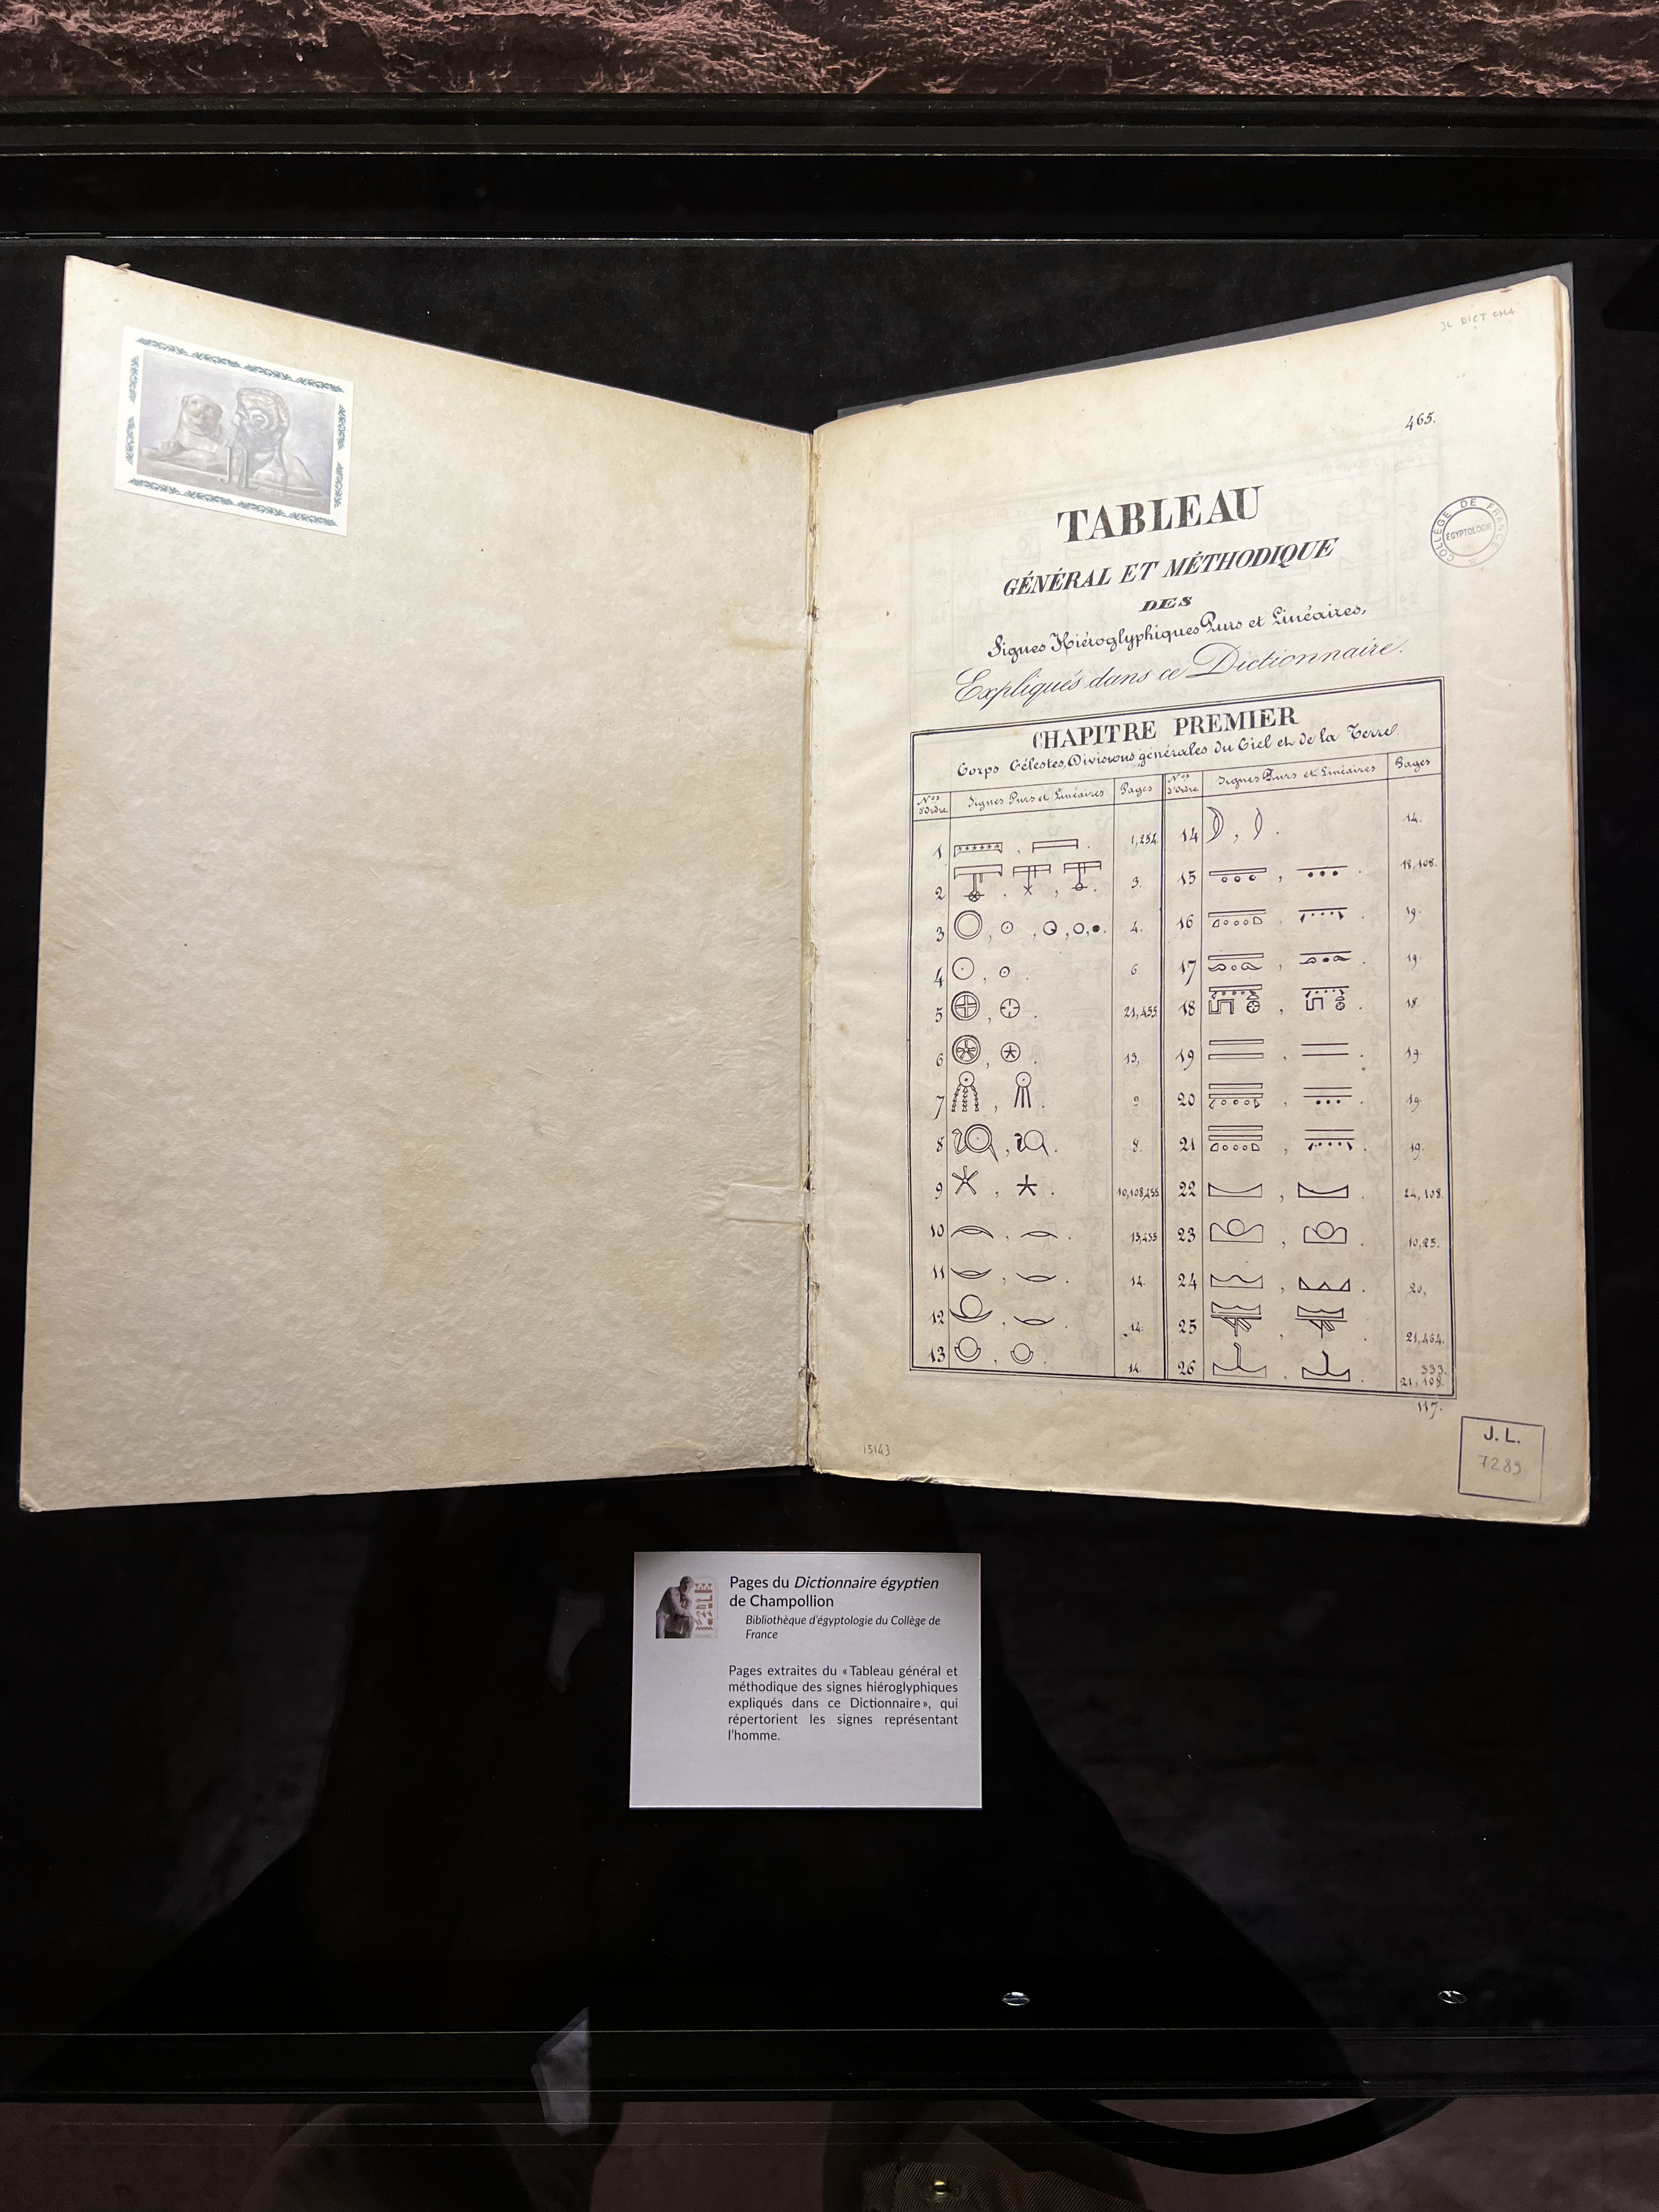 JL DICT CHA
465.
COLLÈGE DE FRANCE
ÉGYPTOLOGIE
TABLEAU
GÉNÉRAL ET MÉTHODIQUE
DES
Signes Hiéroglyphiques Purs et Linéaires,
Expliqués dans ce Dictionnaire.
CHAPITRE PREMIER
Corps Célestes, Divisions générales du Ciel et de la Terre
Nos d'Ordre Signes Purs et Linéaires Pages Nos d'Ordre Signes Purs et Linéaires Pages
1 1, 254. 14 14.
2 3. 15 18, 108.
3 4. 16 19.
4 6 17 19.
5 21, 455 18 18.
6 13, 19 19.
7 20 19.
8 8. 21 19.
9 10, 108, 455. 22 24, 108.
10 13, 455 23 10, 25.
11 14. 24 20,
12 14. 25 21, 464.
13 14. 26 333.
21, 108.
117.
15143
J. L.
7289
Pages du Dictionnaire égyptien
de Champollion
Bibliothèque d'égyptologie du Collège de
France
Pages extraites du « Tableau général et
méthodique des signes hiéroglyphiques
expliqués dans ce Dictionnaire », qui
répertorient les signes représentant
l'homme.